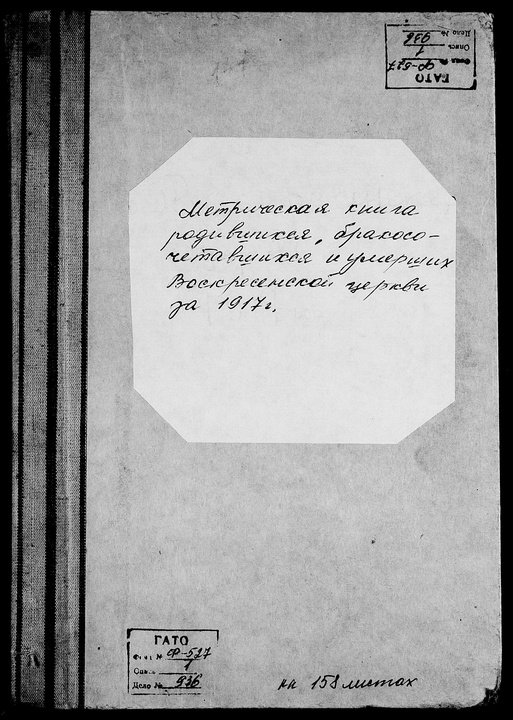 Дело № 936
Опись 1
Фонд № Ф-527
ГАТО
Метрическая книга
родившихся, бракосо-
четавшихся и умерших
Воскресенской церкви
за 1917г.
ГАТО
Фонд № Ф-527
Опись 1
Дело № 936
на 158 листах